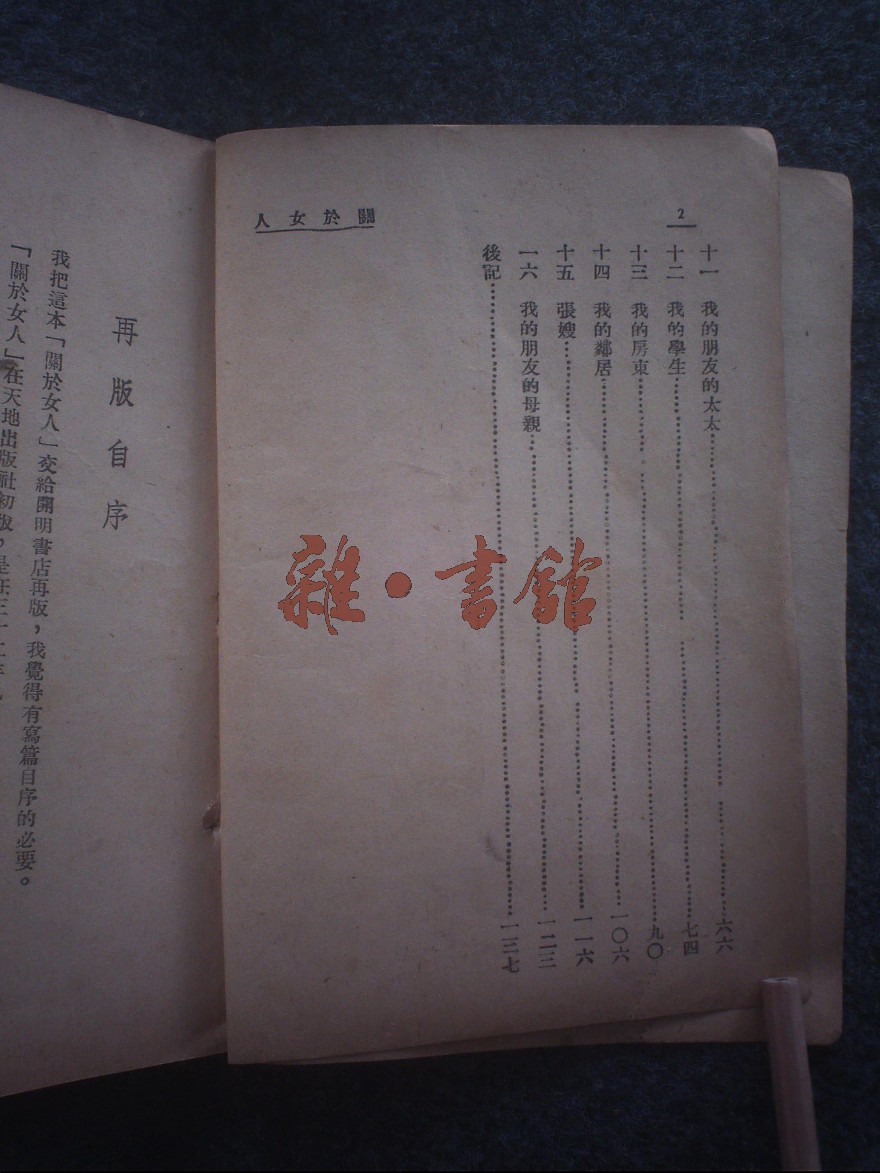 2
關於女人
十一　我的朋友的太太……六六
十二　我的學生……七四
十三　我的房東……九〇
十四　我的鄰居……一〇六
十五　張嫂……一一六
一六　我的朋友的母親……一二三
後記……一三七
雜•書館
再版自序
我把這本「關於女人」交給開明書店再版，我覺得有寫篇自序的必要。
「關於女人」在天地出版社初版，是在三十二年